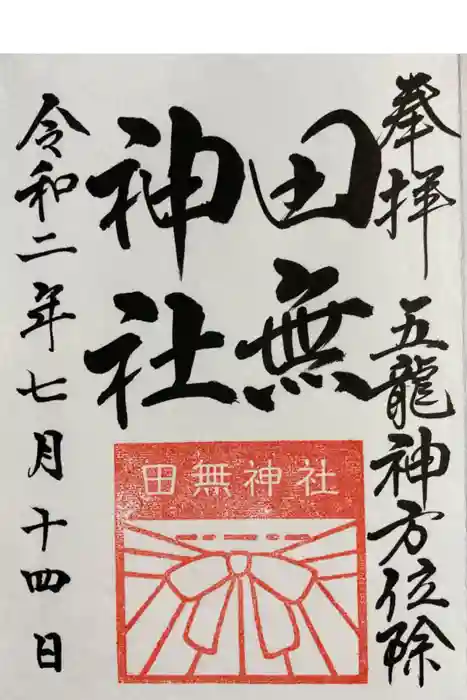 奉拝 五龍神方位除
田無
神社
令和二年七月十四日
田無神社